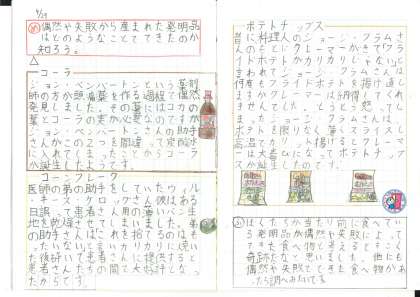 4/29
め 偶然や失敗から産まれた発明品
はどのようなことでできたのか
知ろう。
△
コーラ
ジョン・ペンバートンという薬剤
師の方が頭痛薬を作る過程で偶然
発見しました。その薬はコカの
葉とコーラの実から
ジョン・ペンバートンさんの助手
さんがこの2つを間違って炭酸水
に入れてしまったことからコーラ
が誕生したようです。
コーンフレーク
医師の弟の助手をしていたウィル
・キース・ケロッグさん。彼はある
日誤って患者さん用のパン生
地を乾燥させてしまいました。弟
の助手さんはこれを捨てるのはも
ったいないと言いカリカリに
た後研いで患者さんに提供すると
患者さんたちの間で大好評となっ
たから。
ポテトチップス
昔に料理人のジョージ・クラムさ
んのもとにクレーマーがきてフラ
イドポテトがカリカリじゃないと
言われてジョージ・クラムさんは
何度もフライドポテトを
しかしクレーマーは納得してくれ
ませんでした。とうとう怒ってし
まったジョージ・クラムさんは
ポテトを限りなく薄くスライスし
高温でカラッと揚げるとクレーマ
ーは大喜びによってポテトチップ
スが誕生したのです。
ふ ぼくたちが当たり前に食べてい
る発明品が偶然や失敗によって
できた食べ物と考えるとすごく
奇跡だなと思いました。他にも
偶然や失敗とできた食べ物があ
ったら調べみたいです。